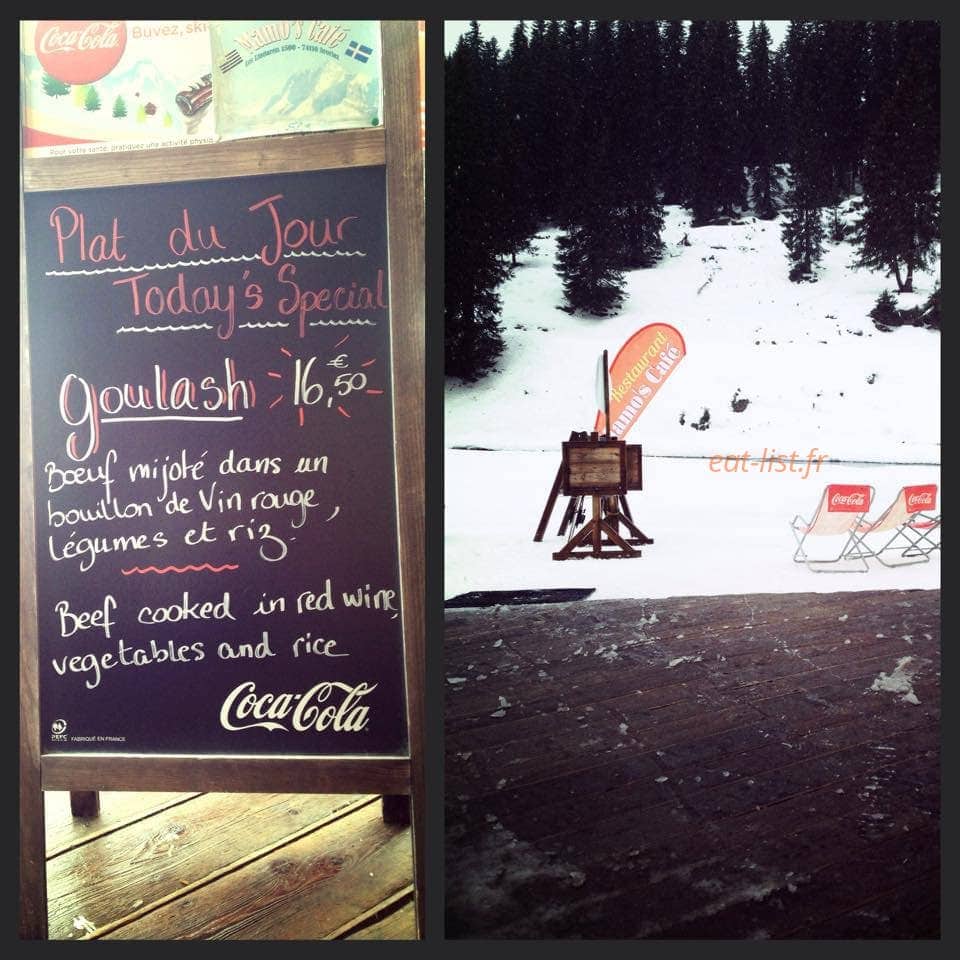 Coca-Cola
Buvez, ski
Mamo's Café
Pour votre santé, pratiquez une activité physiq
Plat du Jour
Today's Special
goulash 16,50 €
Bœuf mijoté dans un
bouillon de Vin rouge,
légumes et riz.
Beef cooked in red wine,
vegetables and rice
Coca-Cola
PEFC FABRIQUÉ EN FRANCE
Restaurant
amo's Café
eat-list.fr
Coca-Cola
Coca-Cola